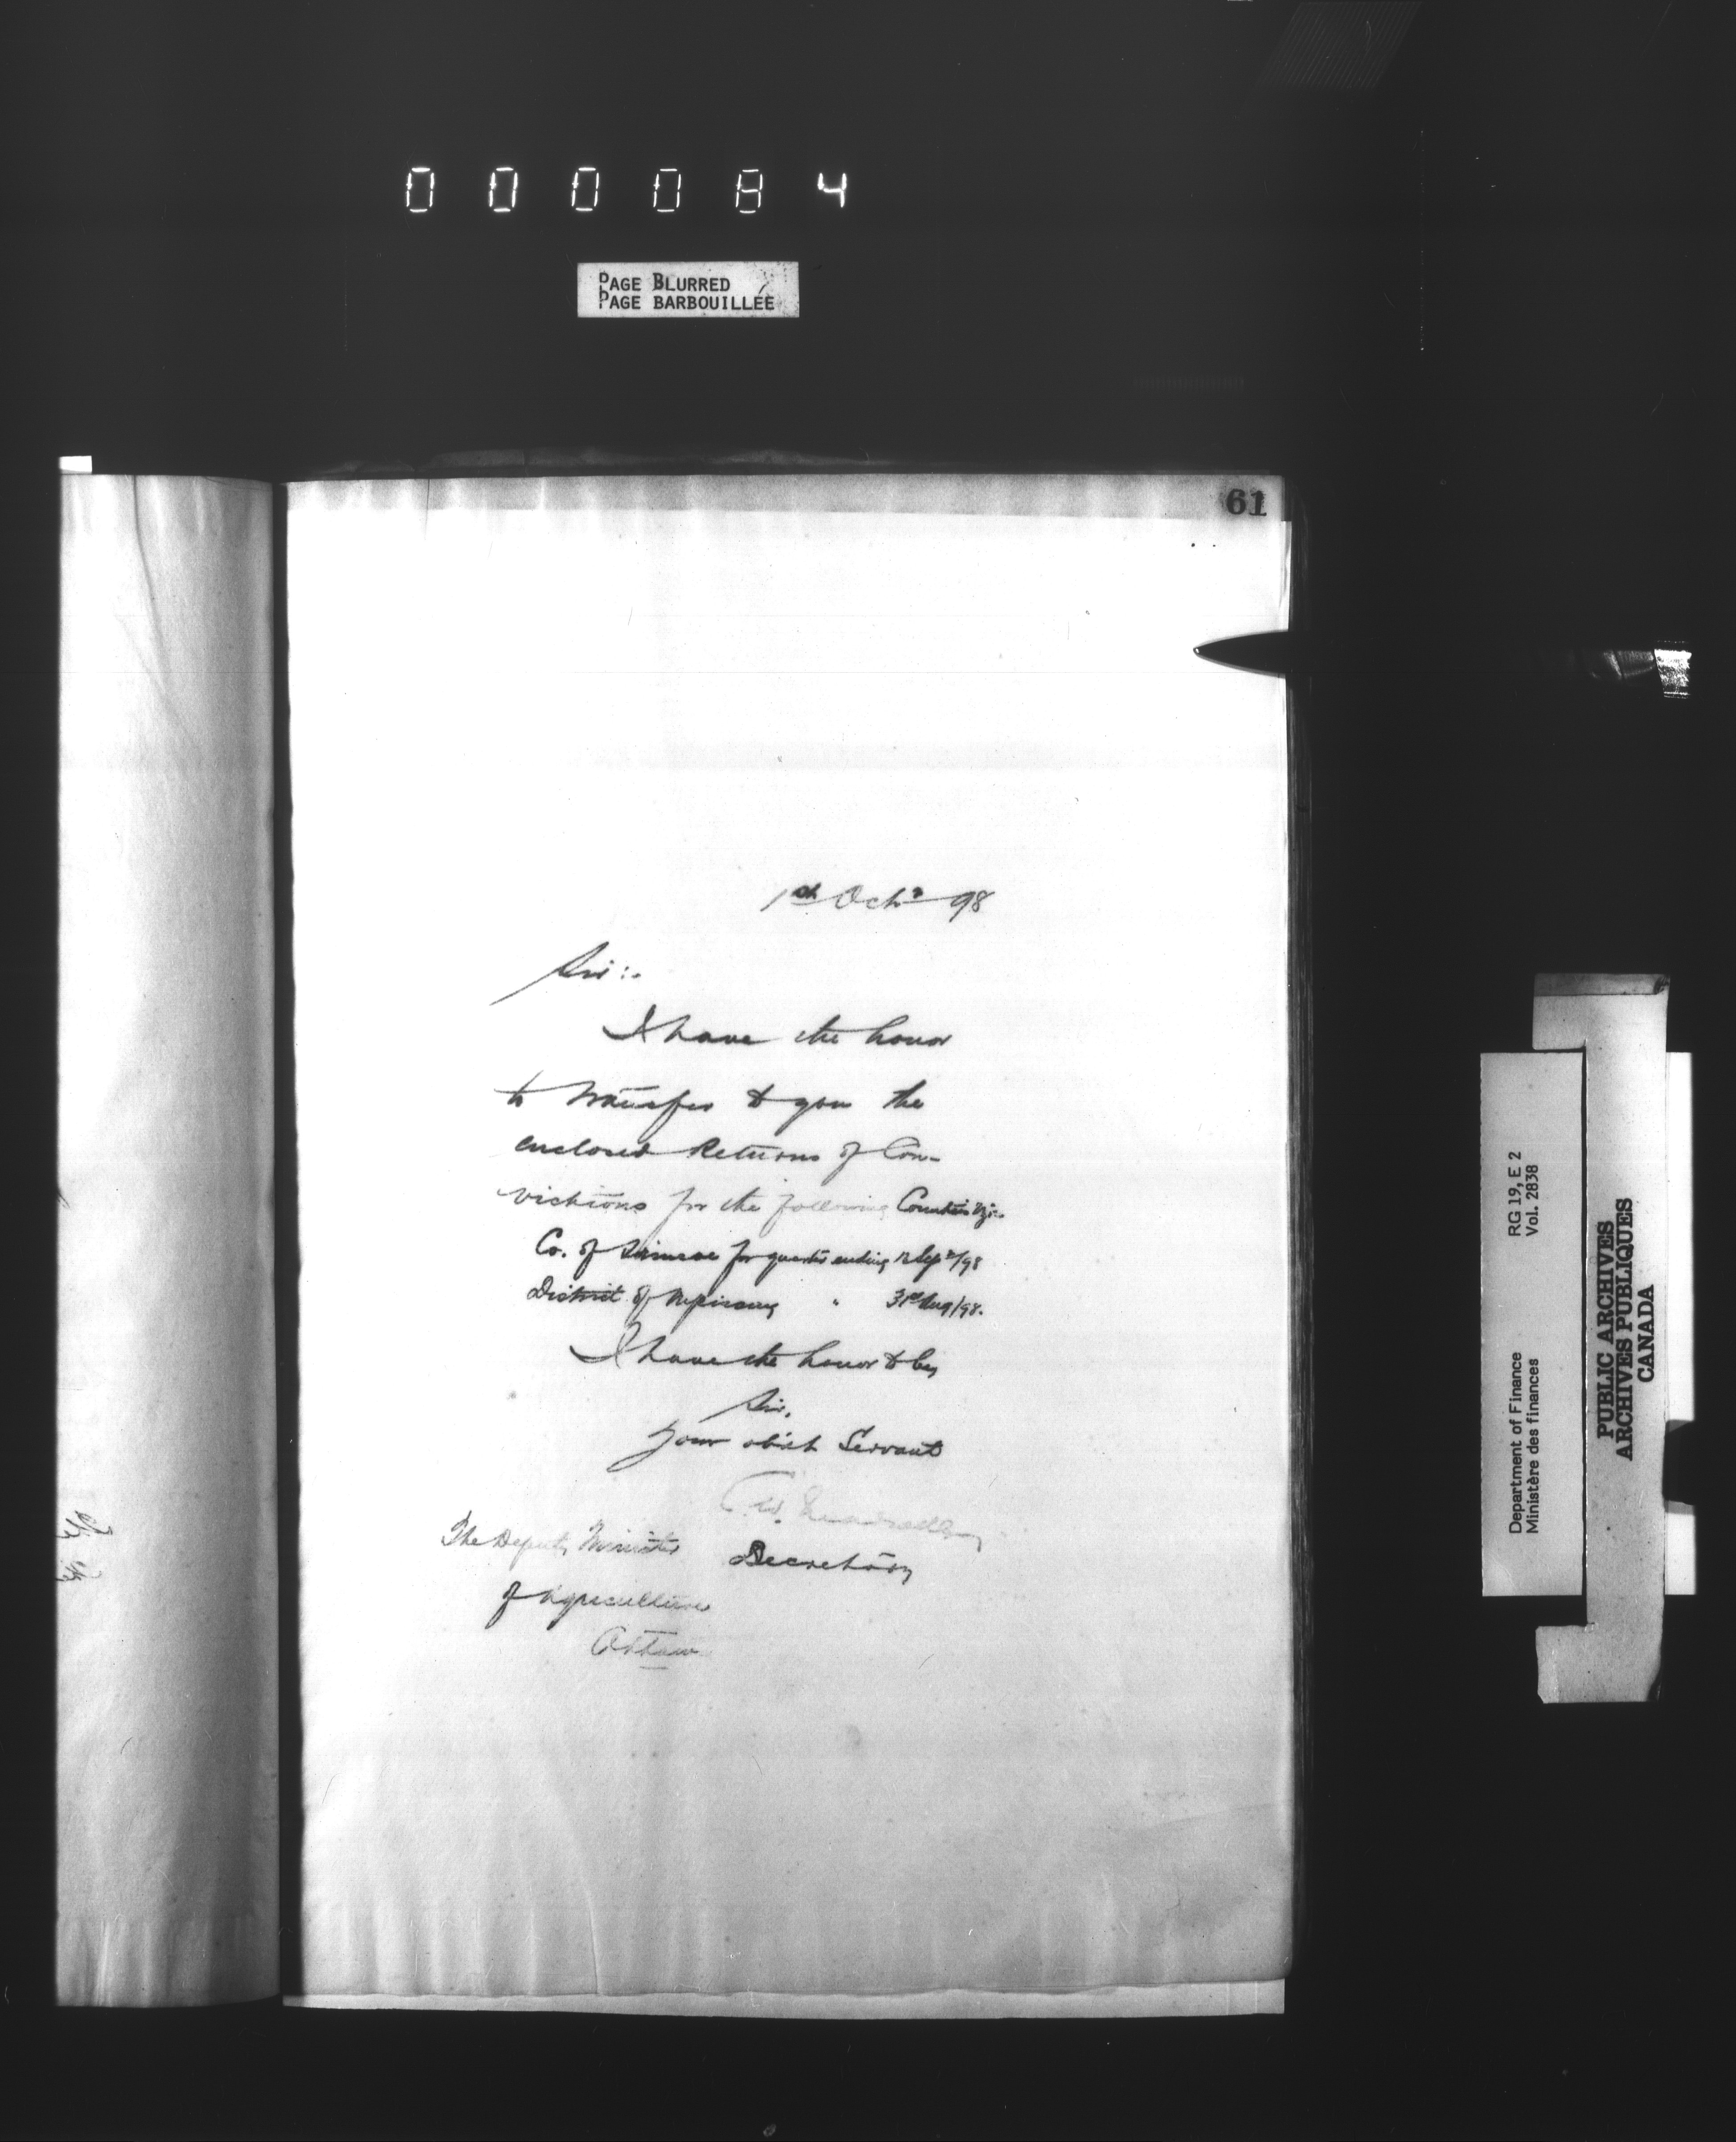 000084
PAGE BLURRED
PAGE BARBOUILLÉE
61
1st Octr 98
Sir:-
I have the honor
to transfer to you the
enclosed Returns of Con-
victions for the following Counties viz:-
Co. of Simcoe for quarter ending 12 Sepr/98
District of Nipissing " 31st Aug/98.
I have the honor to be,
Sir,
Your obdt Servant
Secretary
The Deputy Minister
of Agriculture
Ottawa
RG 19, E 2
Vol. 2838
Department of Finance
Ministère des finances
PUBLIC ARCHIVES
ARCHIVES PUBLIQUES
CANADA